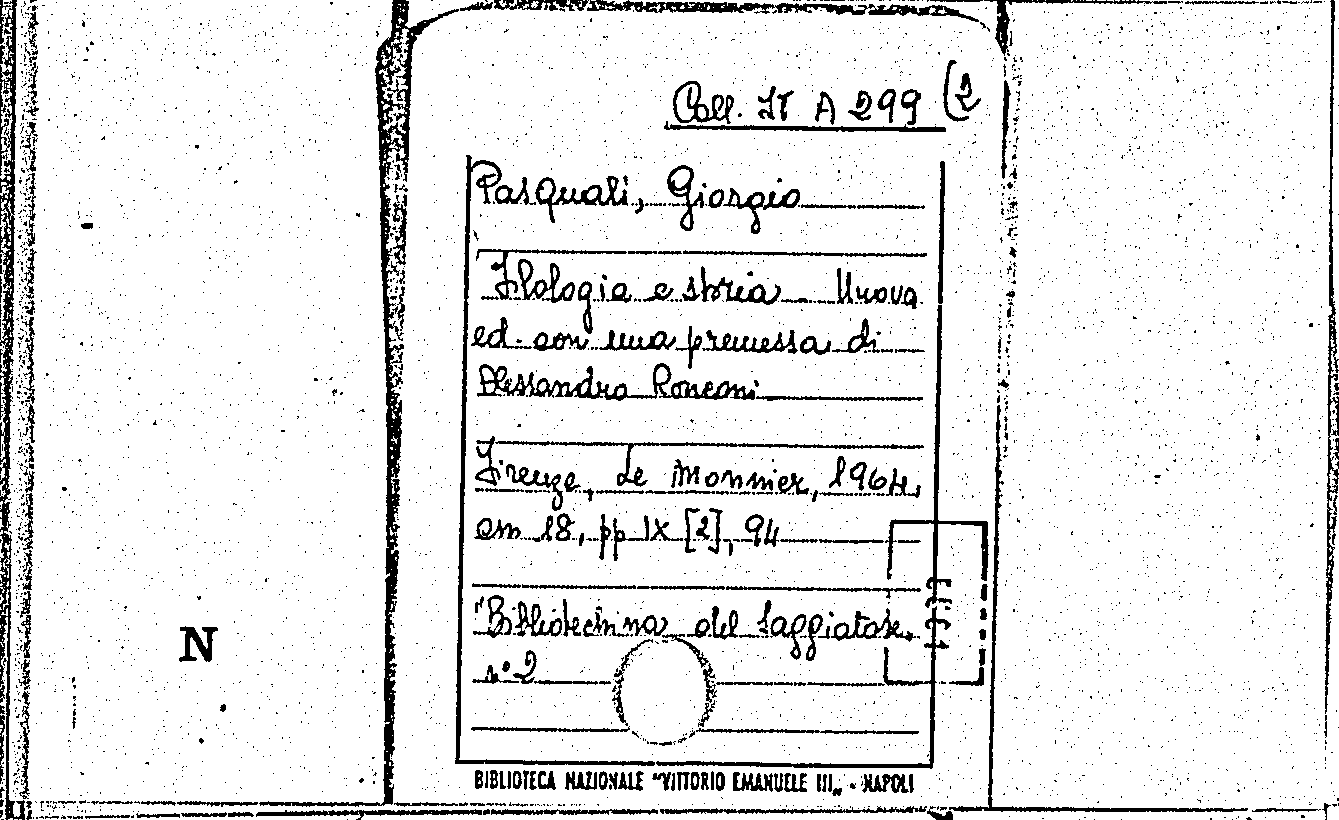 Coll. IT A 299 (2
Pasquali, Giorgio
Filologia e storia. Nuova
ed. con una premessa di
Alessandro Ronconi
Firenze, Le Monnier, 1964,
cm 18, pp IX [2], 94
"Bibliotechina del Saggiatore.
n° 2
N
BIBLIOTECA NAZIONALE "VITTORIO EMANUELE III„ - NAPOLI